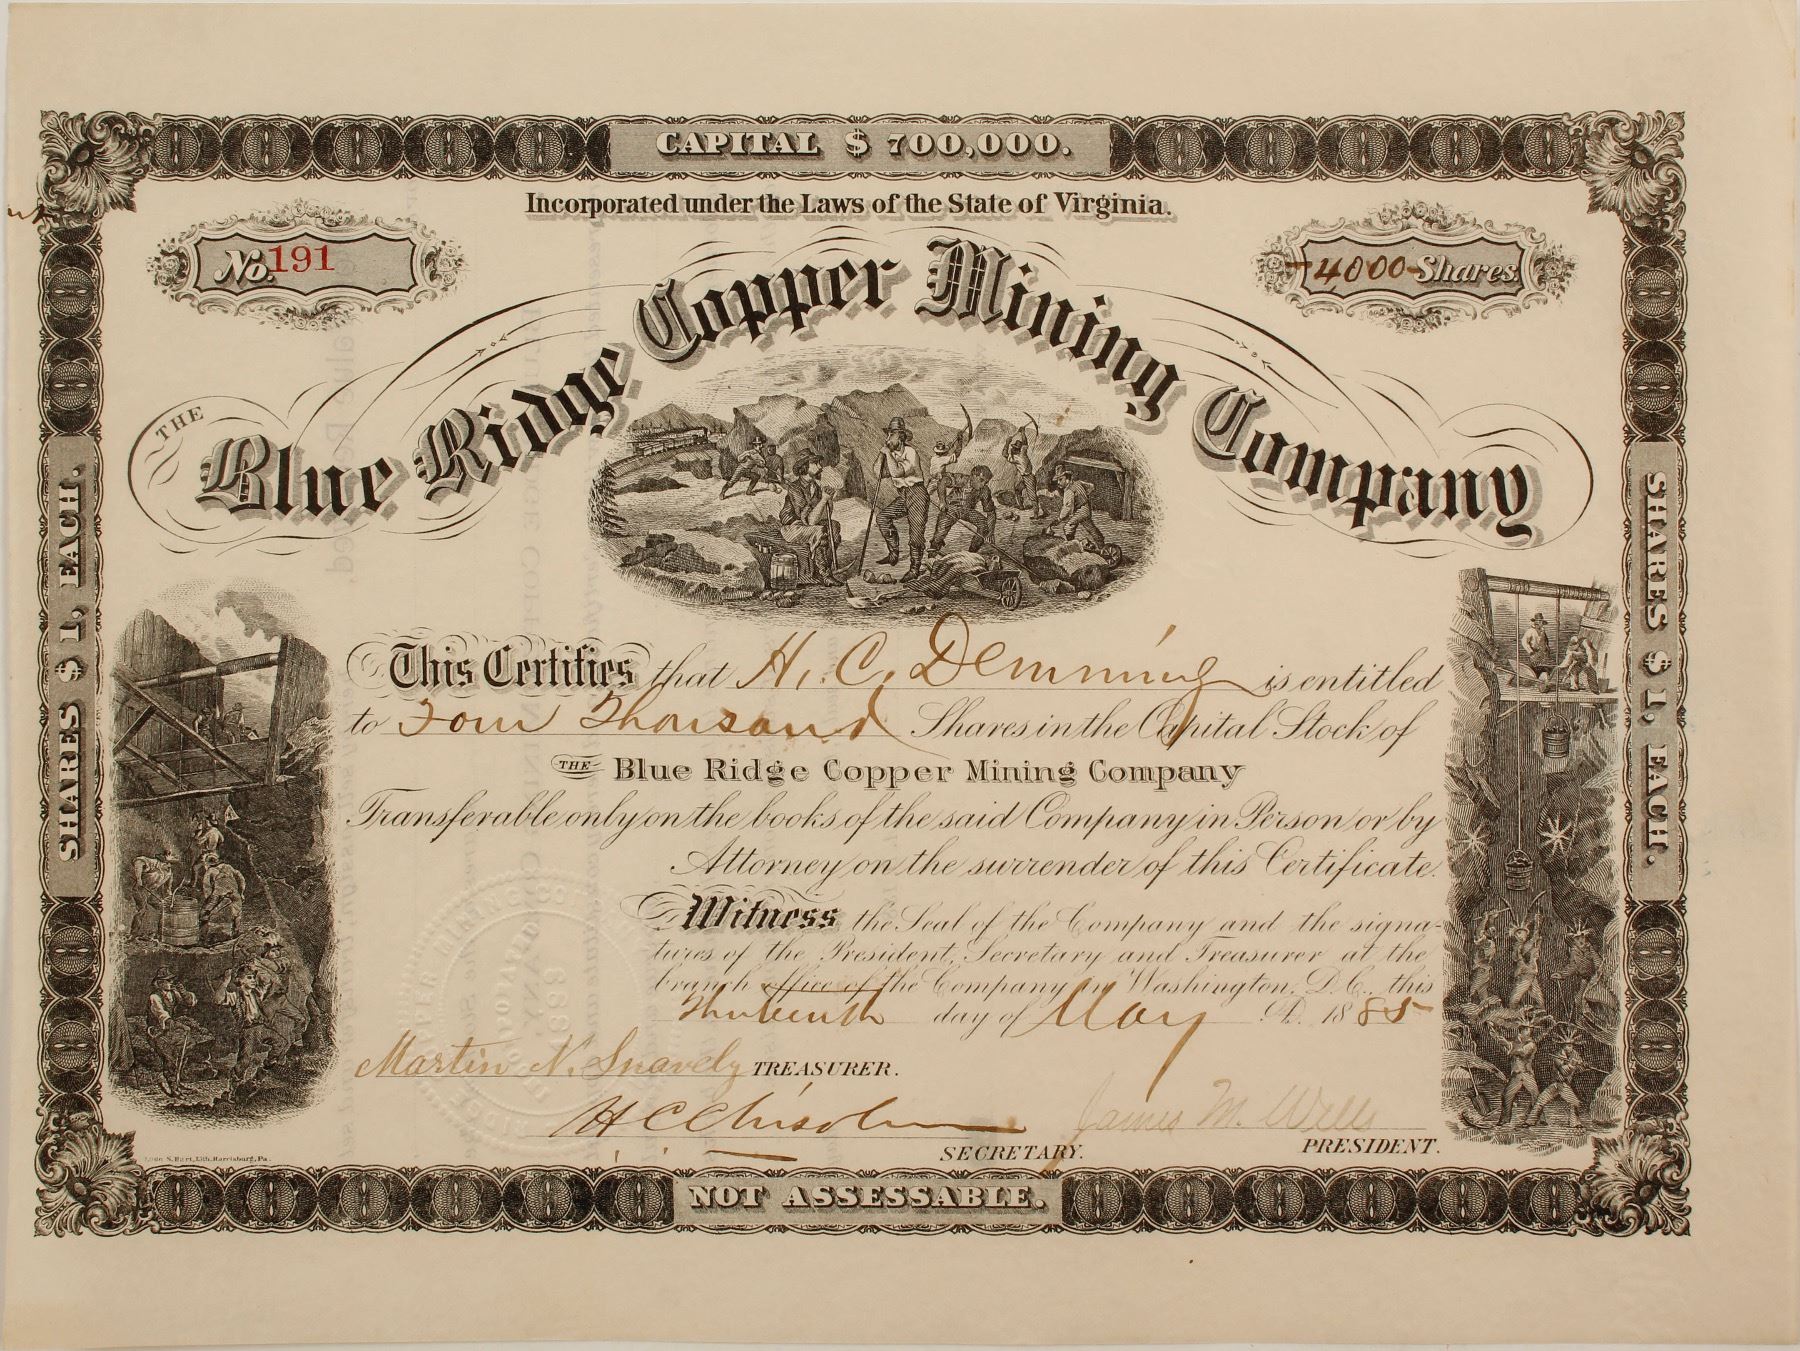 CAPITAL $ 700,000.
Incorporated under the Laws of the State of Virginia.
No. 191
-4,000- Shares
THE
Blue Ridge Copper Mining Company
SHARES $ 1, EACH.
SHARES $ 1, EACH.
This Certifies that H. C. Demming is entitled
to Four Thousand Shares in the Capital Stock of
THE Blue Ridge Copper Mining Company
Transferable only on the books of the said Company in Person or by
Attorney on the surrender of this Certificate.
Witness the Seal of the Company and the signa-
tures of the President, Secretary and Treasurer at the
branch office of the Company in Washington, D.C., this
Thirteenth day of May A.D. 1885
Martin N. Snavely TREASURER.
H C Chisolm SECRETARY.
James M. Wells PRESIDENT.
S. Hart, Lith. Harrisburg, Pa.
NOT ASSESSABLE.